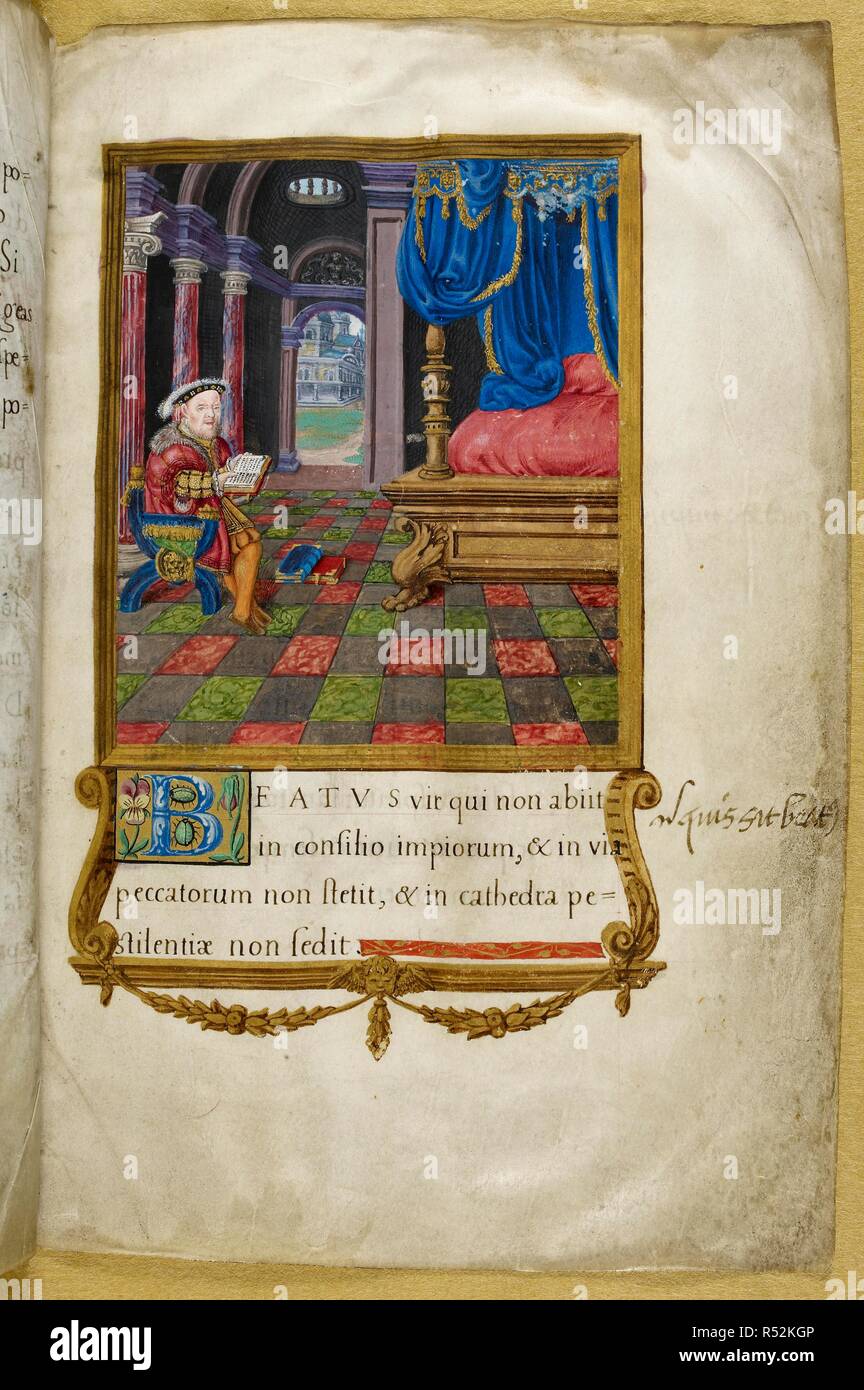 po=
Si
geas
spe=
po=
BEATVS vir qui non abiit
in consilio impiorum, & in via
peccatorum non stetit, & in cathedra pe=
stilentiæ non sedit.
quis sit beat
alamy
Image ID: R52KGP
www.alamy.com